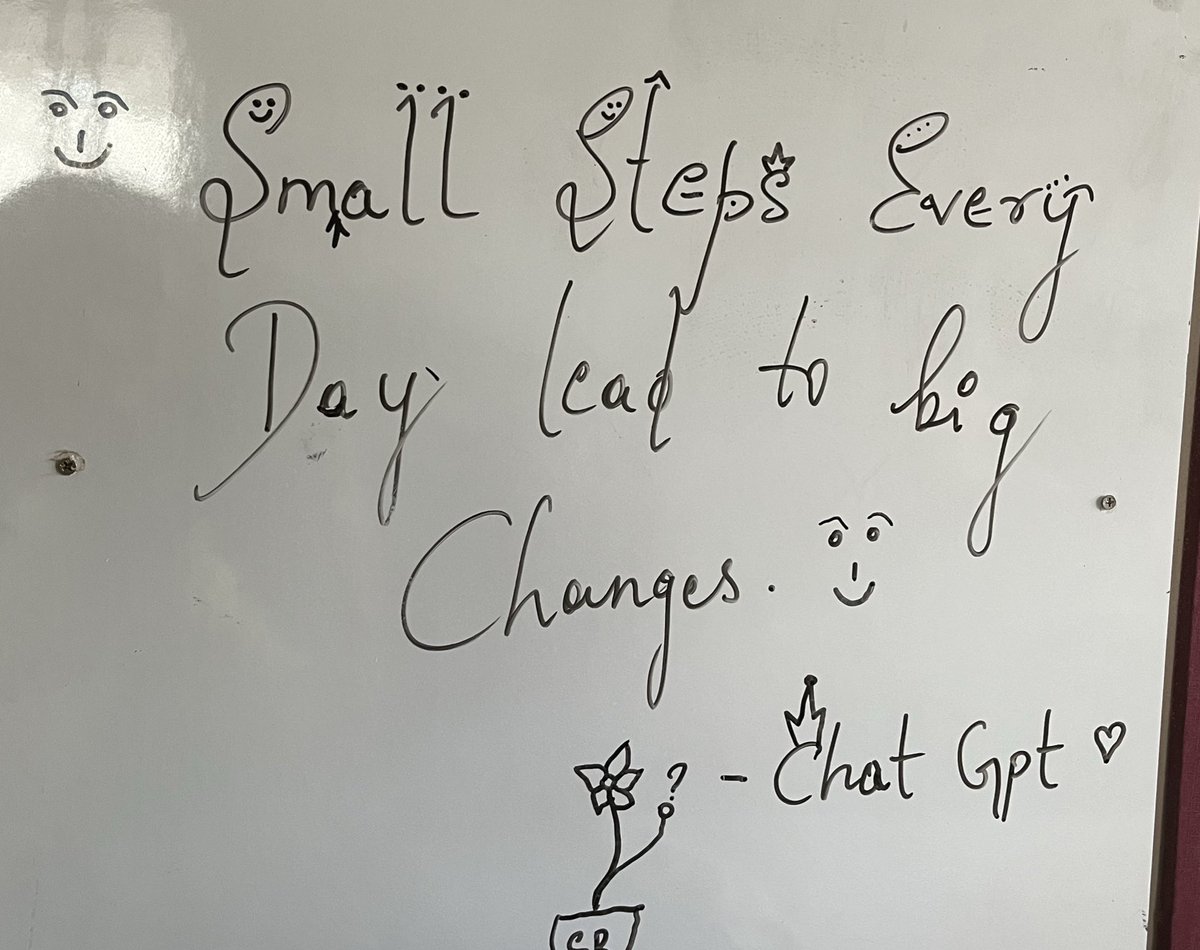 Small Steps Every
Day lead to big
Changes.
? - Chat Gpt ♡